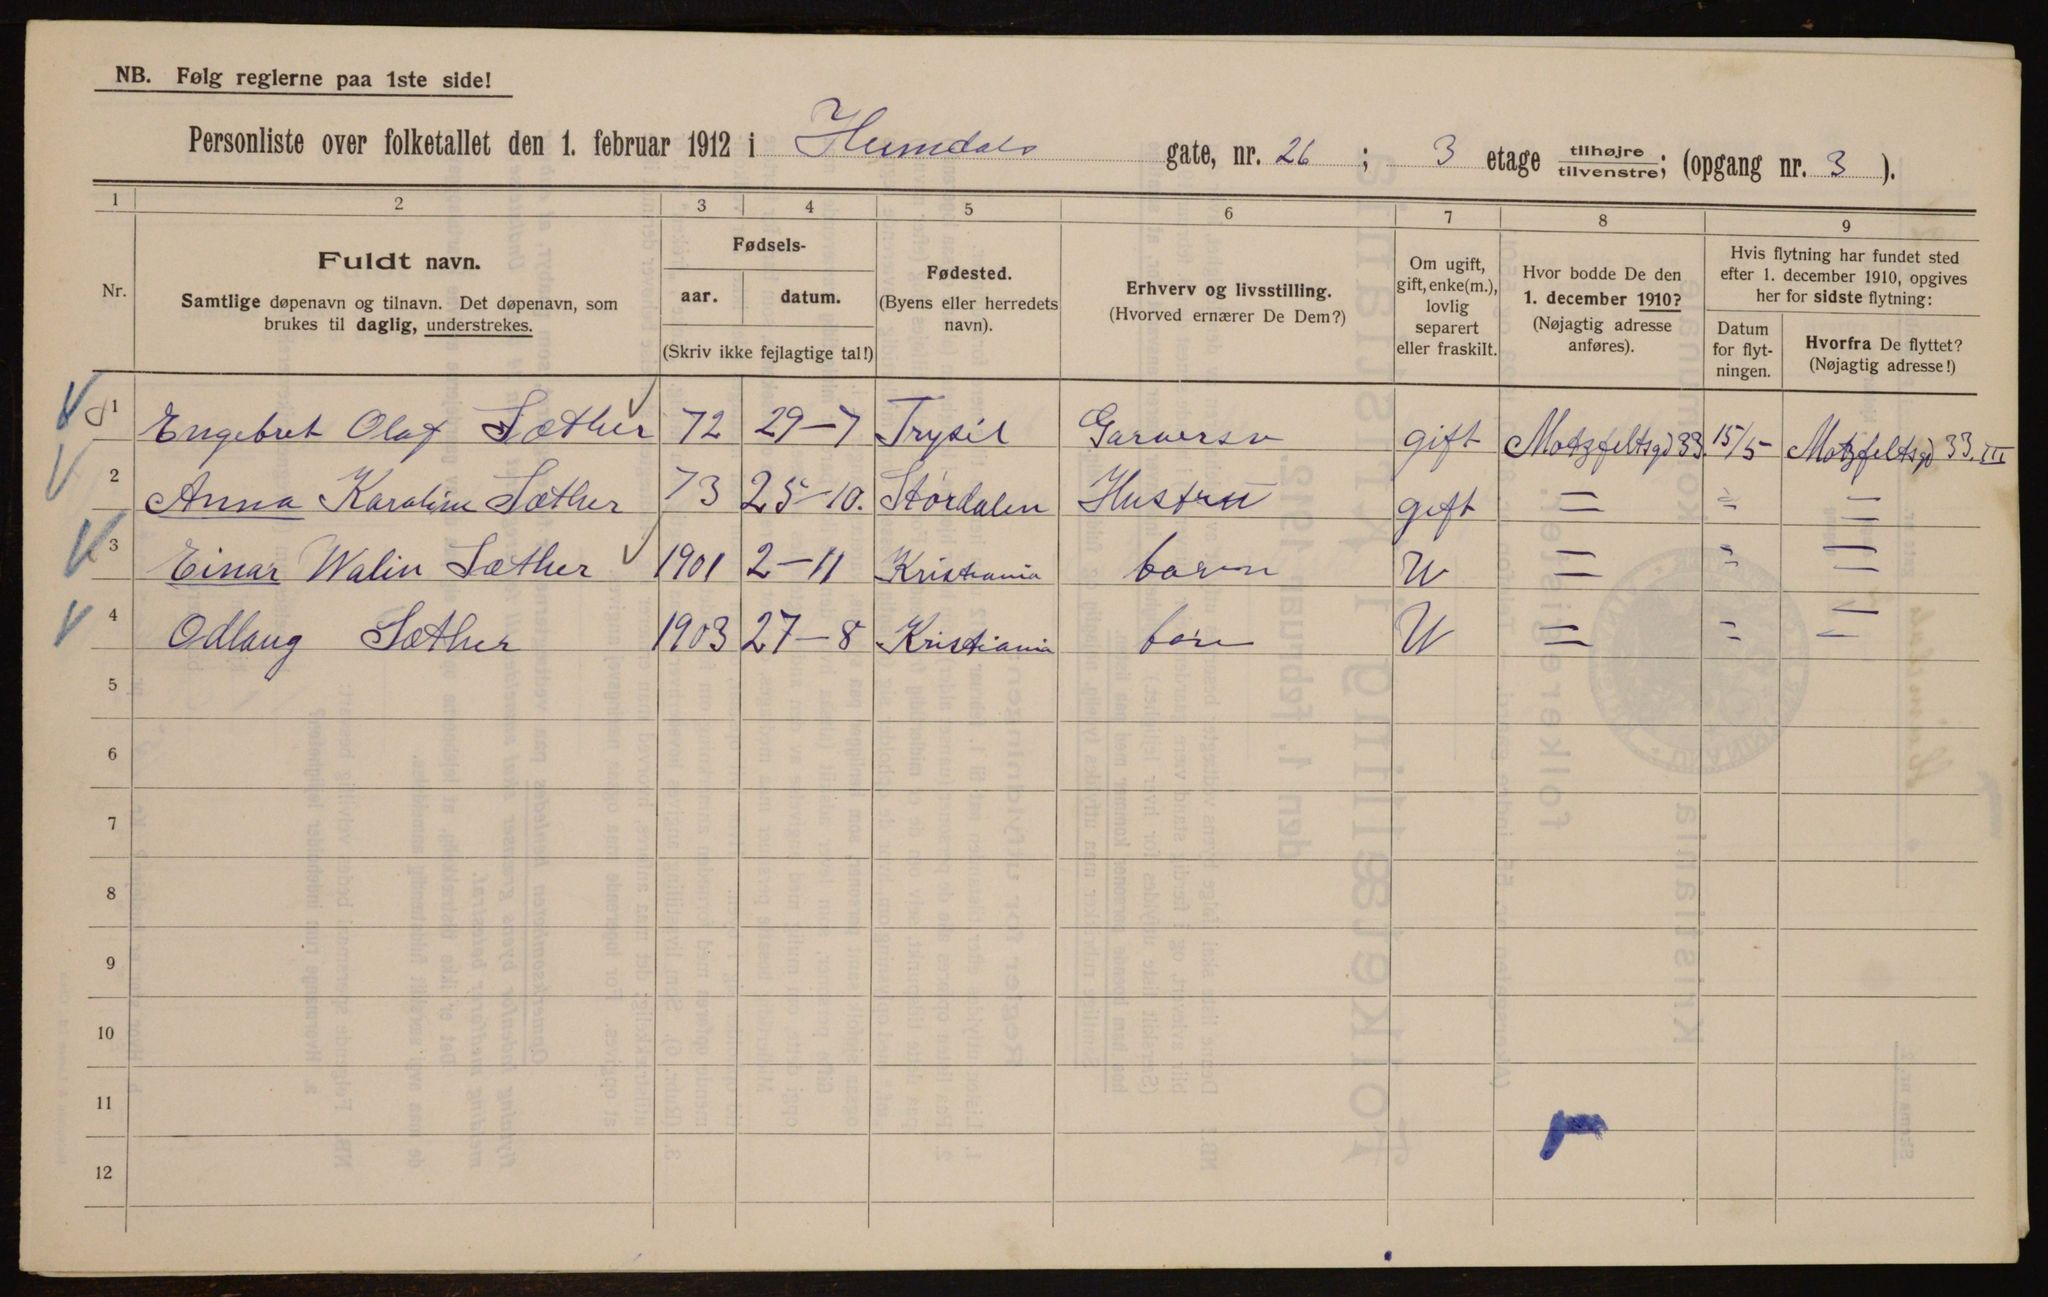 NB. Følg reglerne paa 1ste side!
Personliste over folketallet den 1. februar 1912 i Heimdals gate, nr. 26 ; 3 etage tilhøjre/tilvenstre; (opgang nr. 3 ).
1 2 3 4 5 6 7 8 9
Nr.
Fuldt navn.
Samtlige døpenavn og tilnavn. Det døpenavn, som
brukes til daglig, understrekes.
Fødsels-
aar. datum.
(Skriv ikke fejlagtige tal!)
Fødested.
(Byens eller herredets
navn).
Erhverv og livsstilling.
(Hvorved ernærer De Dem?)
Om ugift,
gift, enke(m.),
lovlig
separert
eller fraskilt.
Hvor bodde De den
1. december 1910?
(Nøjagtig adresse
anføres).
Hvis flytning har fundet sted
efter 1. december 1910, opgives
her for sidste flytning:
Datum
for flyt-
ningen.
Hvorfra De flyttet?
(Nøjagtig adresse!)
1 Engebret Olaf Sæther 72 29-7 Trysil Garversv gift Motzfeltsgd 33. 15/5 Motzfeltsgd 33. III
2 Anna Karoline Sæther 73 25-10. Størdalen Hustru gift = = =
3 Einar Walin Sæther 1901 2-11 Kristiania barn U = = =
4 Odlaug Sæther 1903 27-8 Kristiania barn U = = =
5
6
7
8
9
10
11
12